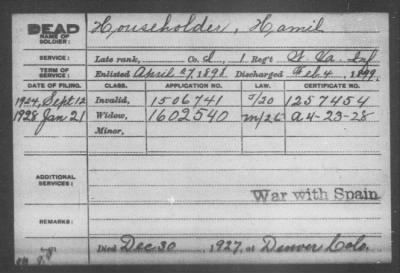 DEAD
NAME OF SOLDIER: Householder, Hamil
SERVICE: Late rank, Co. d, 1 Reg't W. Va. Inf
TERM OF SERVICE: Enlisted April 27, 1898 Discharged Feb. 4, 1899.
DATE OF FILING. CLASS. APPLICATION NO. LAW. CERTIFICATE NO.
1924, Sept 12 Invalid, 1506741 1257454
1928 Jan 21 Widow, 1602540 m/26 A 4-23-28
Minor,
ADDITIONAL SERVICES:
War with Spain
REMARKS:
Died Dec 30, 1927, at Denver Colo.